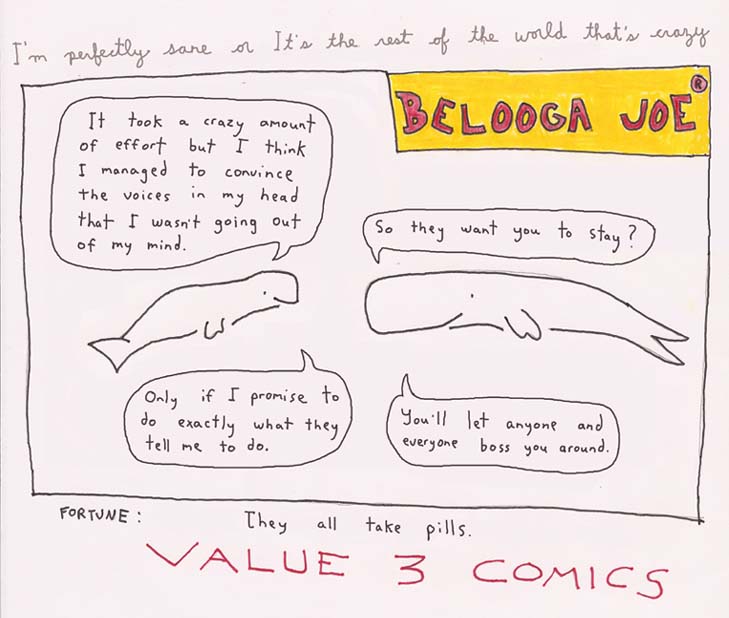 I'm perfectly sane or It's the rest of the world that's crazy
BELOOGA JOE®
It took a crazy amount
of effort but I think
I managed to convince
the voices in my head
that I wasn't going out
of my mind.
So they want you to stay?
Only if I promise to
do exactly what they
tell me to do.
You'll let anyone and
everyone boss you around.
FORTUNE: They all take pills.
VALUE 3 COMICS